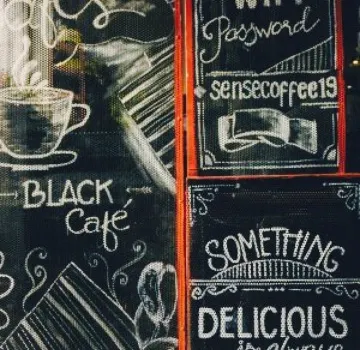 BLACK
Café
WIFI
Password
sensecoffee19
SOMETHING
DELICIOUS
is always